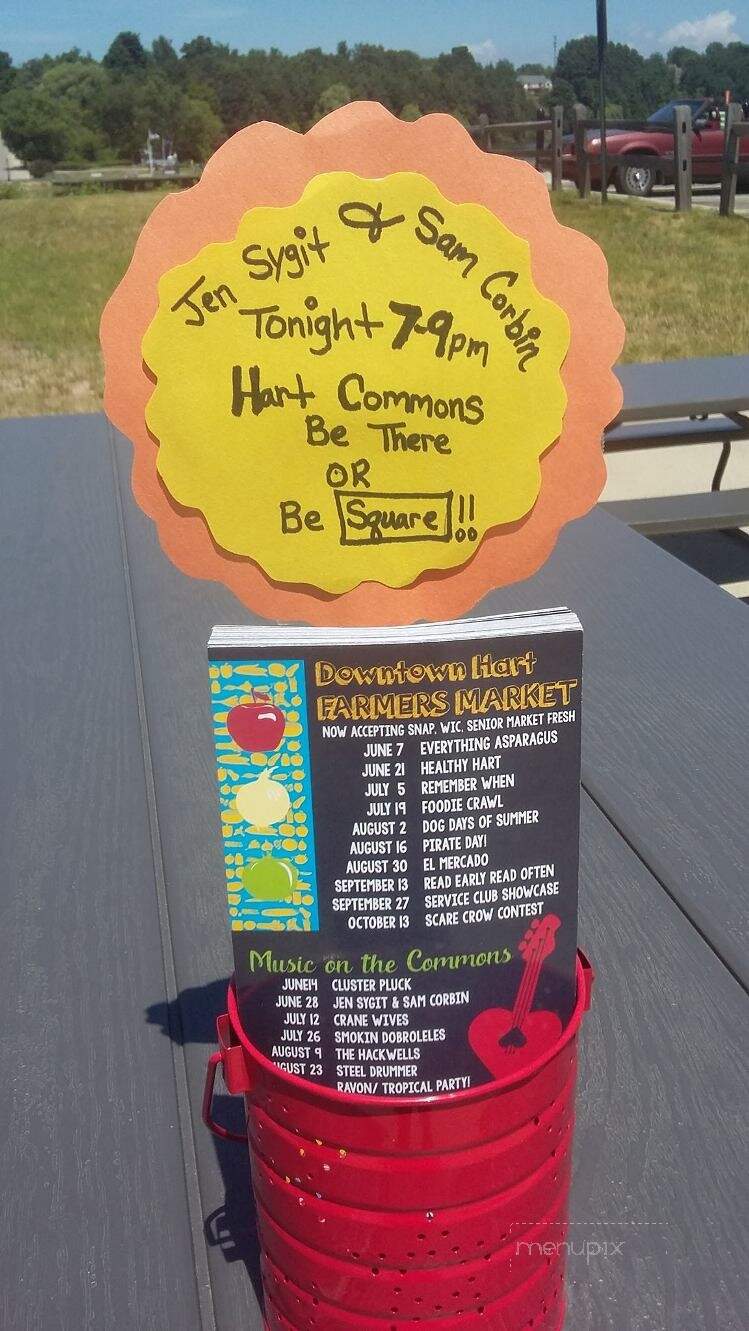 Jen Sygit & Sam Corbin
Tonight 7-9pm
Hart Commons
Be There
OR
Be Square!!
Downtown Hart
FARMERS MARKET
NOW ACCEPTING SNAP, WIC, SENIOR MARKET FRESH
JUNE 7 EVERYTHING ASPARAGUS
JUNE 21 HEALTHY HART
JULY 5 REMEMBER WHEN
JULY 19 FOODIE CRAWL
AUGUST 2 DOG DAYS OF SUMMER
AUGUST 16 PIRATE DAY!
AUGUST 30 EL MERCADO
SEPTEMBER 13 READ EARLY READ OFTEN
SEPTEMBER 27 SERVICE CLUB SHOWCASE
OCTOBER 13 SCARE CROW CONTEST
Music on the Commons
JUNE14 CLUSTER PLUCK
JUNE 28 JEN SYGIT & SAM CORBIN
JULY 12 CRANE WIVES
JULY 26 SMOKIN DOBROLELES
AUGUST 9 THE HACKWELLS
UGUST 23 STEEL DRUMMER
RAVON/ TROPICAL PARTY!
menupix